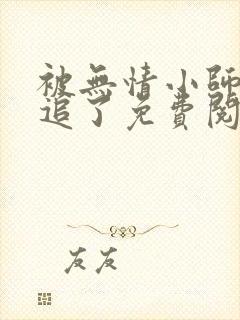 被無情小師
追了免費閱
友友